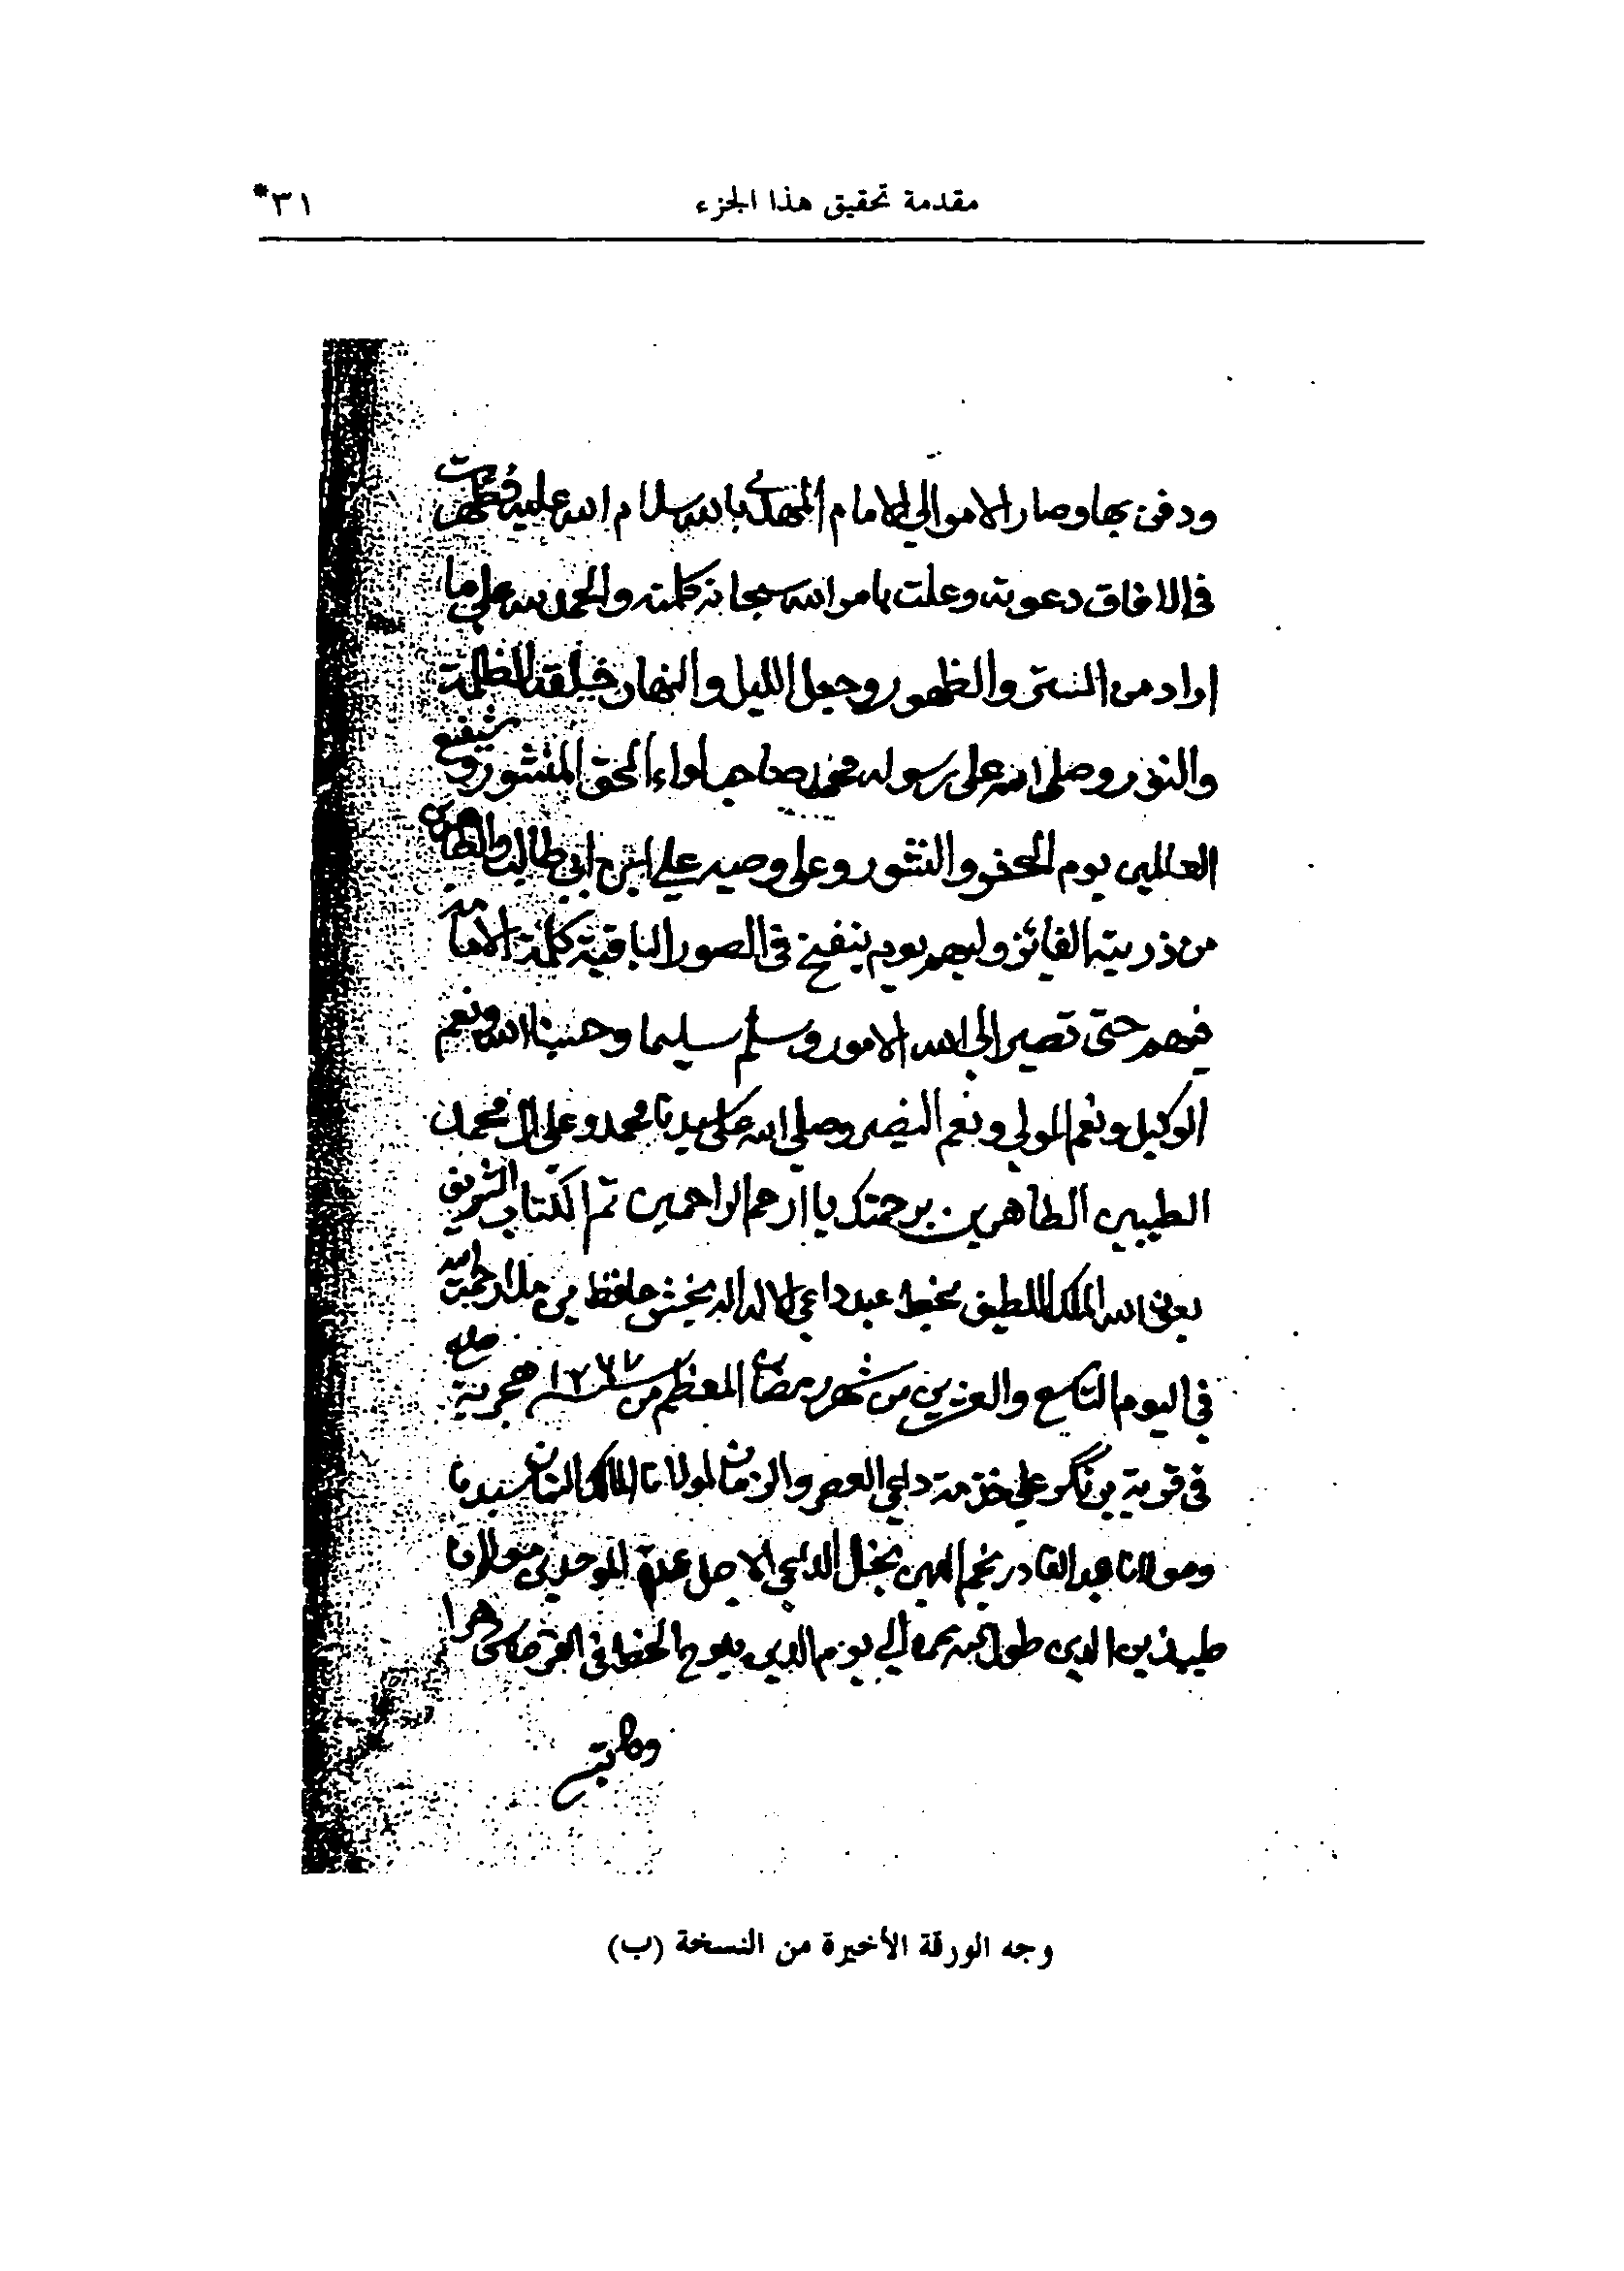 مقدمة تحقيق هذا الجزء
٣١*
ودفن بها وصار الامر الي الامام المهدي بالله سلام الله عليه فظهرت
في الافاق دعوته وعلت بامر الله سبحانه كلمته والحمد لله علي ما
اراد من الستر والظهور وجعل الليل والنهار خلقة للظلمة
والنور وصلي الله علي رسوله محمد صاحب لواء الحق المنشور وشفيع
العالمين يوم الحشر والنشور وعلي وصيه علي ابن ابي طالب والطاهرين
من ذريته الفائز وليهم يوم ينفخ في الصور الباقية كلمة الامامة
فيهم حتى تصير الي الله الامور وسلم تسليما وحسبنا الله ونعم
الوكيل ونعم المولي ونعم النصير وصلي الله علي سيدنا محمد وعلي ال محمد
الطيبين الطاهرين برحمتك يا ارحم الراحمين تم الكتاب الشريف
بعون الله الملك اللطيف بخط عبد داعي الاله اله بخش حافظ بن ملا رحمة الله
في اليوم التاسع والعشرين من شهر رمضان المعظم من سنة ١٢٦٧ هجرية
في قرية علي خدمة داعي العصر والزمان لمولانا المالك سيدنا
ومولانا عبد القادر نجم الدين نجل الداعي الاجل عمدة الموحدين مولانا
طيب زين الدين طول الله عمره الي يوم الدين يلوح الخط في القرطاس دهرا
وكاتبه
وجه الورقة الأخيرة من النسخة (ب)